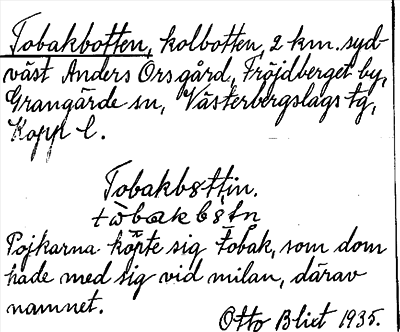 Tobakbotten, kolbotten, 2 km. syd-
väst Anders Ors gård, Fröjdberget by,
Grangärde sn, Västerbergslags tg,
Kopp l.
Tobakb8ttin.
tòbakb8tn̥
Pojkarna köpte sig tobak, som dom
hade med sig vid milan, därav
namnet.
Otto Blixt 1935.